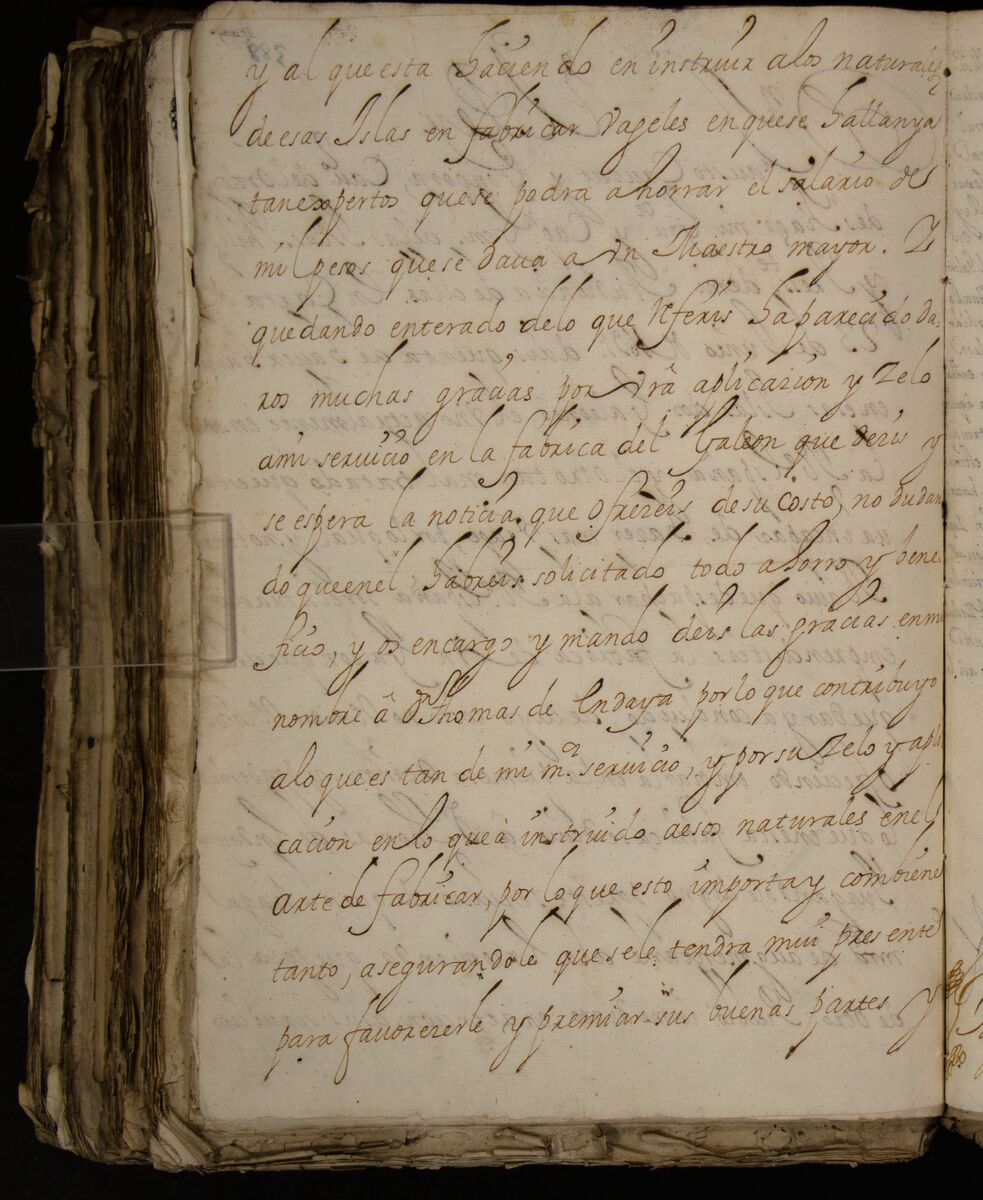 y al que esta haciendo en instruir a los naturales
de esas Islas en fabricar Vageles en que se hallan ya
tan expertos que se podra ahorrar el salario de
mil pesos que se daua a vn Maestro mayor. Y
quedando enterado de lo que referis ha parecido da,
ros muchas gracias por vrã aplicazion y zelo
a mi seruicio en la fabrica del Galeon que dezis y
se espera la noticia que ofrezeis de su costo, no dudan
do que en el habreis solicitado todo ahorro y bene
ficio, y os encargo y mando deis las gracias en mi
nombre â Dn Thomas de Endaya por lo que contribuyo
a lo que es tan de mi mr. seruicio, y por su zelo y apli
cacion en lo que à instruido a esos naturales en el
Arte de fabricar, por lo que esto importa y combiene
tanto, asegurandole que se le tendra mui presente
para fauorezerle y premiar sus buenas partes y